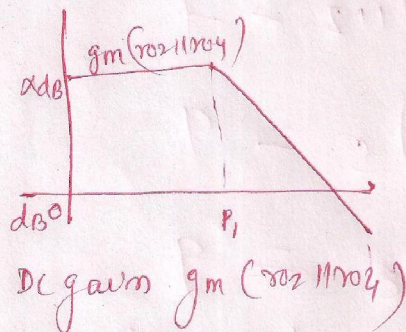 gm(ro2 || ro4)
αdB
dB0
P1
DC gain gm (ro2 || ro4)